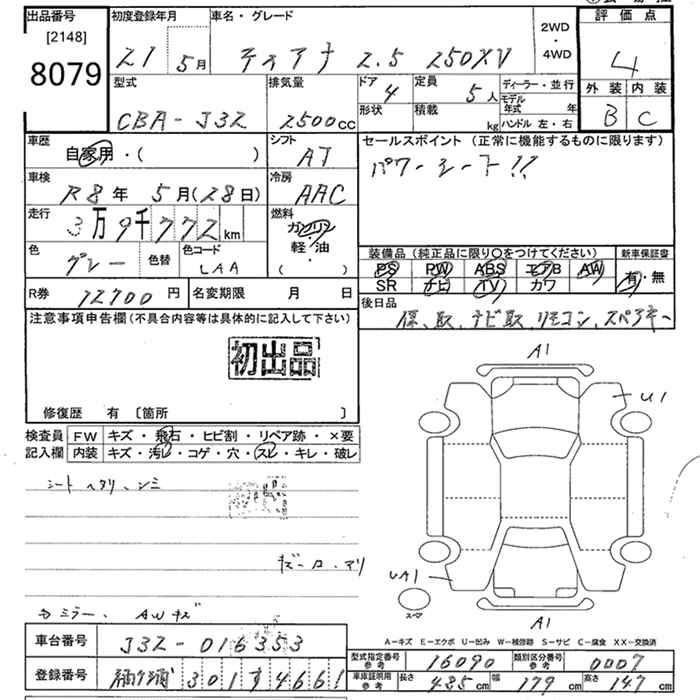 出品番号 初度登録年月 車名・グレード 2WD・4WD 評価点
[2148]
8079 21 5月 ティアナ 2.5 250XV 4
型式 排気量 ドア 4 定員 5人 ディーラー・並行 外装 内装
CBA-J32 2500cc 形状 積載 kg モデル年式 年 ハンドル 左・右 B C
車歴 自家用・( ) シフト AT セールスポイント (正常に機能するものに限ります)
車検 R8年 5月(28日) 冷房 AAC パワーシート!!
走行 3万9千772km 燃料 ガソリン 軽・油 ( )
色 グレー 色替 色コード LAA
装備品 (純正品に限り〇をつけてください) 新車保証書
PS PW ABS エアB AW 有・無
SR ナビ TV カワ
R券 12700円 名変期限 月 日
後日品 保、取、ナビ取、リモコン、スペアキー
注意事項申告欄(不具合内容等は具体的に記入して下さい)
初出品
修復歴 有 〔箇所 〕
検査員記入欄 FW キズ・飛石・ヒビ割・リペア跡・×要
内装 キズ・汚レ・コゲ・穴・スレ・キレ・破レ
シートヘタリ、シミ
ミラー、AWキズ
A1
U1
UA1
A1
A-キズ E-エクボ U-凹み W-補修跡 S-サビ C-腐食 XX-交換済
車台番号 J32-016353
型式指定番号 参考 16090 類別区分番号 参考 0007
登録番号 301す4661
車庫証明用 参考 長さ 485cm 幅 179cm 高さ 147cm